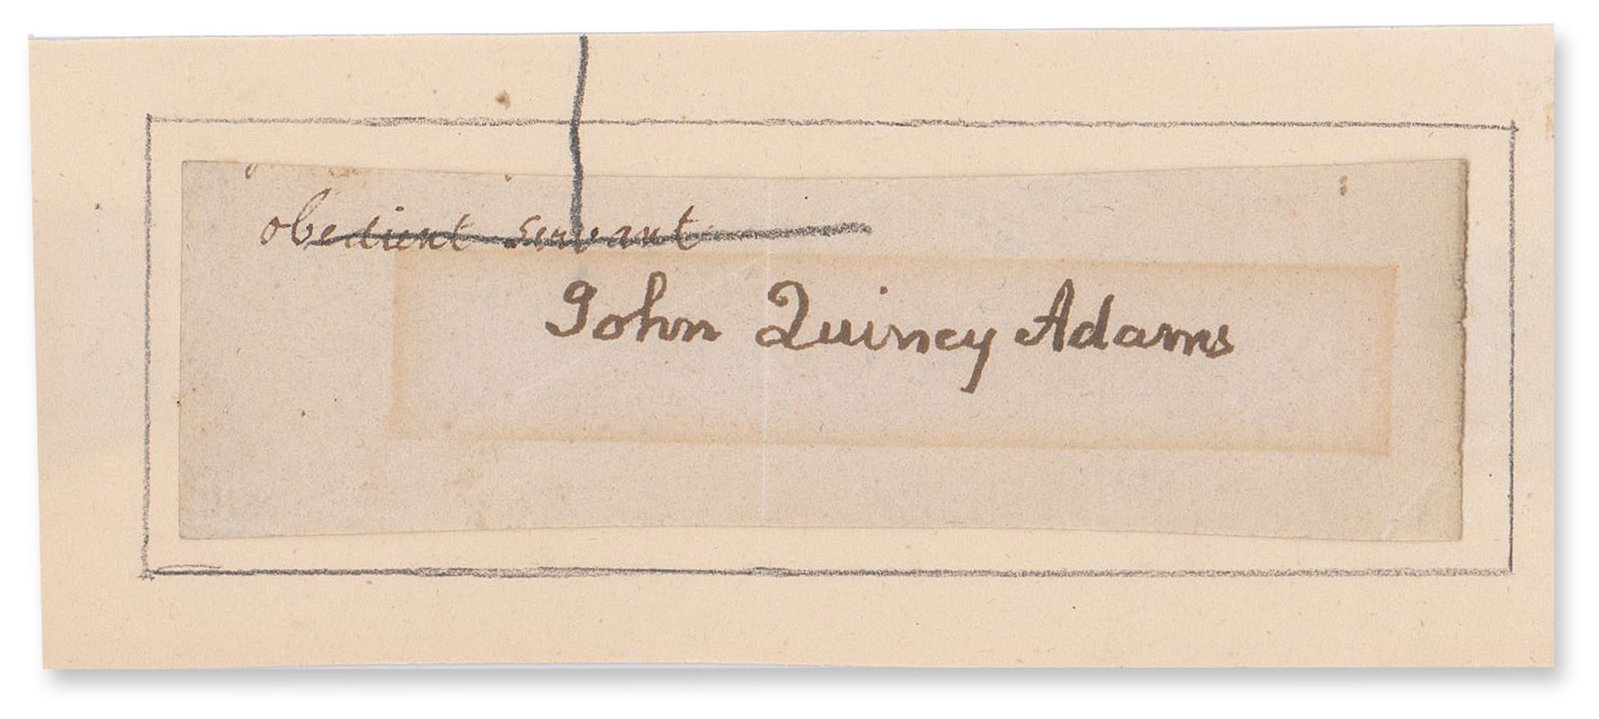 obedient servant
John Quincy Adams